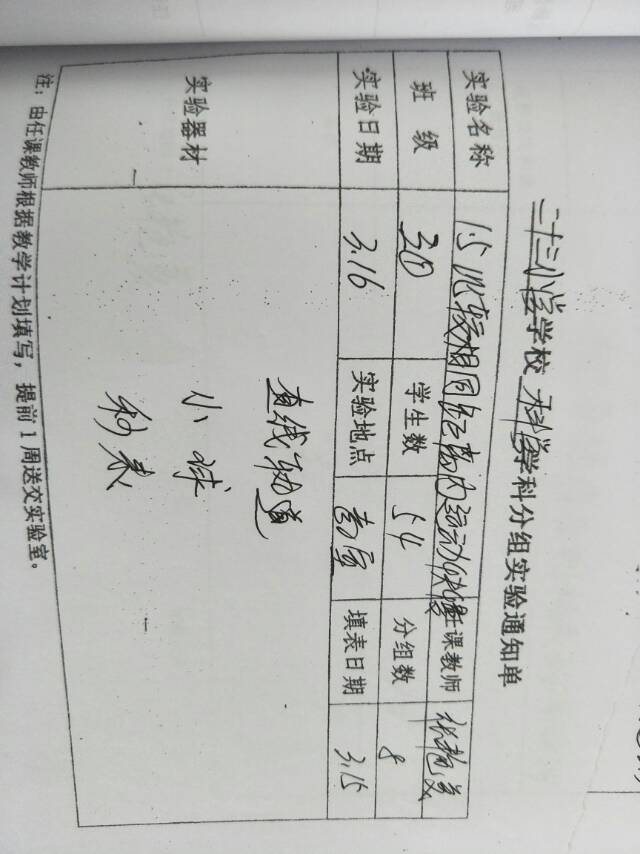 二十三小学学校 科学学科分组实验通知单
实验名称 1.5比较相同距离内运动的快慢 任课教师
班 级 30 学生数 54 分组数 8
实验日期 3.16 实验地点 填表日期 3.15
实验器材 直线轨道
小球
秒表
注:由任课教师根据教学计划填写,提前1周送交实验室。